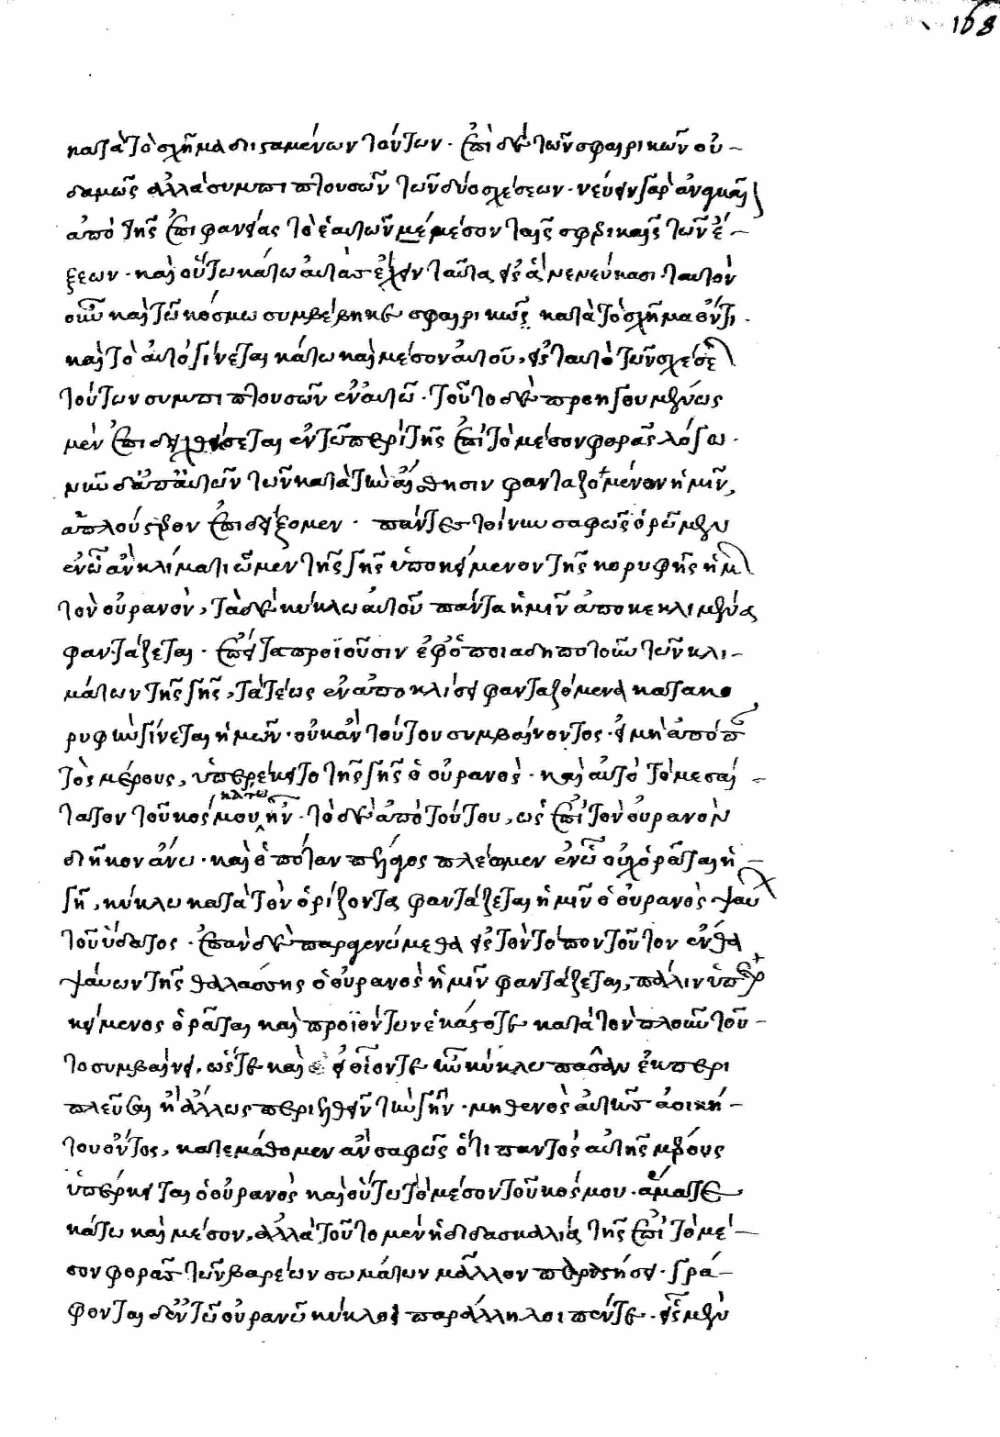 168
κατὰ τὸ σχῆμα διϊσταμένων τούτων. ἐπὶ δὲ τῶν σφαιρικῶν οὐ-
δαμῶς ἀλλὰ συμπιπτουσῶν τῶν δύο σχέσεων. νεύειν γὰρ ἀνάγκη
ἀπὸ τῆς ἐπιφανείας τὸ ἑαυτῶν μέσον ταῖς σφαιρικαῖς τῶν ἕ-
ξεων. καὶ οὕτω κάτω αὐτὰς ἔχειν ταῦτα εἰς ἃ νενεύκασι. ταυτὸν
οὖν καὶ τῷ κόσμῳ συμβέβηκε σφαιρικῶς κατὰ τὸ σχῆμα ὄντι.
καὶ τὸ αὐτὸ γίνεται κάτω καὶ μέσον αὐτοῦ, εἰς ταυτὸ τῶν σχέσεων
τούτων συμπιπτουσῶν ἐν αὐτῷ. τοῦτο δὲ προηγουμένως
μὲν ἐπιδειχθήσεται ἐν τῷ περὶ τῆς ἐπὶ τὸ μέσον φορᾶς λόγῳ.
νῦν δ' ἀπ' αὐτῶν τῶν κατὰ τὴν αἴσθησιν φανταζομένων ἡμῖν,
ἁπλούστερον ἐπιδείξομεν. πάντες τοίνυν σαφῶς ὁρῶμεν
ἐν ᾧ ἂν κλίματι ὦμεν τῆς γῆς ὑπερκείμενον τῆς κορυφῆς ἡμῶν
τὸν οὐρανόν, τὰ δὲ κύκλῳ αὐτοῦ πάντα ἡμῖν ἀποκεκλιμένα
φαντάζεται. ἔπειτα προϊοῦσιν ἐφ' ὁποιαδηποτοῦν τῶν κλι-
μάτων τῆς γῆς, τὰ τέως ἐν ἀποκλίσει φανταζόμενα κατὰ κο
ρυφὴν γίνεται ἡμῶν. οὐκ ἂν τούτου συμβαίνοντος. εἰ μὴ ἀπὸ παν
τὸς μέρους, ὑπερέκειτο τῆς γῆς ὁ οὐρανός. καὶ αὐτὸ τὸ μεσαί-
τατον τοῦ κόσμου κάτω ἦν. τὸ δὲ ἀπὸ τούτου, ὡς ἐπὶ τὸν οὐρανὸν
διῆκον ἄνω. καὶ ὁπόταν πέλαγος πλέωμεν ἐν ᾧ οὐχ ὁρᾶται ἡ-
γῆ, κύκλῳ κατὰ τὸν ὁρίζοντα φαντάζεται ἡμῖν ὁ οὐρανὸς ψαύων
τοῦ ὕδατος. ἐπὰν δὲ παραγενώμεθα εἰς τὸν τόπον τοῦτον ἔνθα
ψαύων τῆς θαλάσσης ὁ οὐρανὸς ἡμῖν φαντάζεται, πάλιν ὑπερ
κείμενος ὁρᾶται καὶ προϊόντων ἑκάστοτε κατὰ τὸν πλοῦν τοῦ-
το συμβαίνει, ὥστε καὶ εἰ οἷόντε ἦν κύκλῳ πᾶσαν ἐκπερι
πλεῦσαι ἢ ἄλλως περιελθεῖν τὴν γῆν. μηθενὸς αὐτῆς ἀοική-
του ὄντος, κατεμάθομεν ἂν σαφῶς ὅτι παντὸς αὐτῆς μέρους
ὑπέρκειται ὁ οὐρανὸς καὶ οὕτω τὸ μέσον τοῦ κόσμου. ἅμα τε
κάτω καὶ μέσον. ἀλλὰ τοῦτο μὲν ἡ διδασκαλία τῆς ἐπὶ τὸ μέ-
σον φορᾶς τῶν βαρέων σωμάτων μᾶλλον παραστήσει. γρά-
φονται δ' ἐν τῷ οὐρανῷ κύκλοι παράλληλοι πέντε. εἷς μὲν